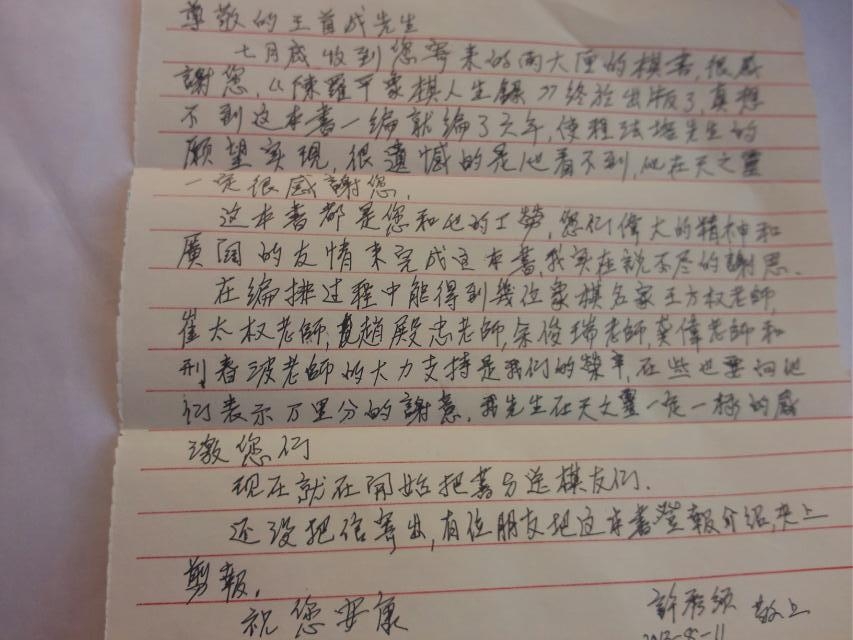 尊敬的王首成先生
七月底收到您寄来的两大厘的棋書,很感
謝您,《陳羅平象棋人生錄》终於出版了,真想
不到这本書一编就编了六年,使程法塔先生的
願望实现,很遺憾的是他看不到,他在天之靈
一定很感謝您.
这本書都是您和他的工勞,您们偉大的精神和
廣闊的友情来完成这本書,我实在説不尽的謝恩.
在编排过程中能得到幾位象棋名家王方权老師,
崔太权老師,趙殿忠老師,余俊瑞老師,龚偉老師和
刑春波老師的大力支持是我们的榮幸,在些也要向他
们表示万里分的謝意.我先生在天之靈一定一様的感
激您们
现在就在開始把書分送棋友们.
还没把信寄出,有位朋友把这本書登報介绍,夹上
剪報.
祝您安康
許 敬上